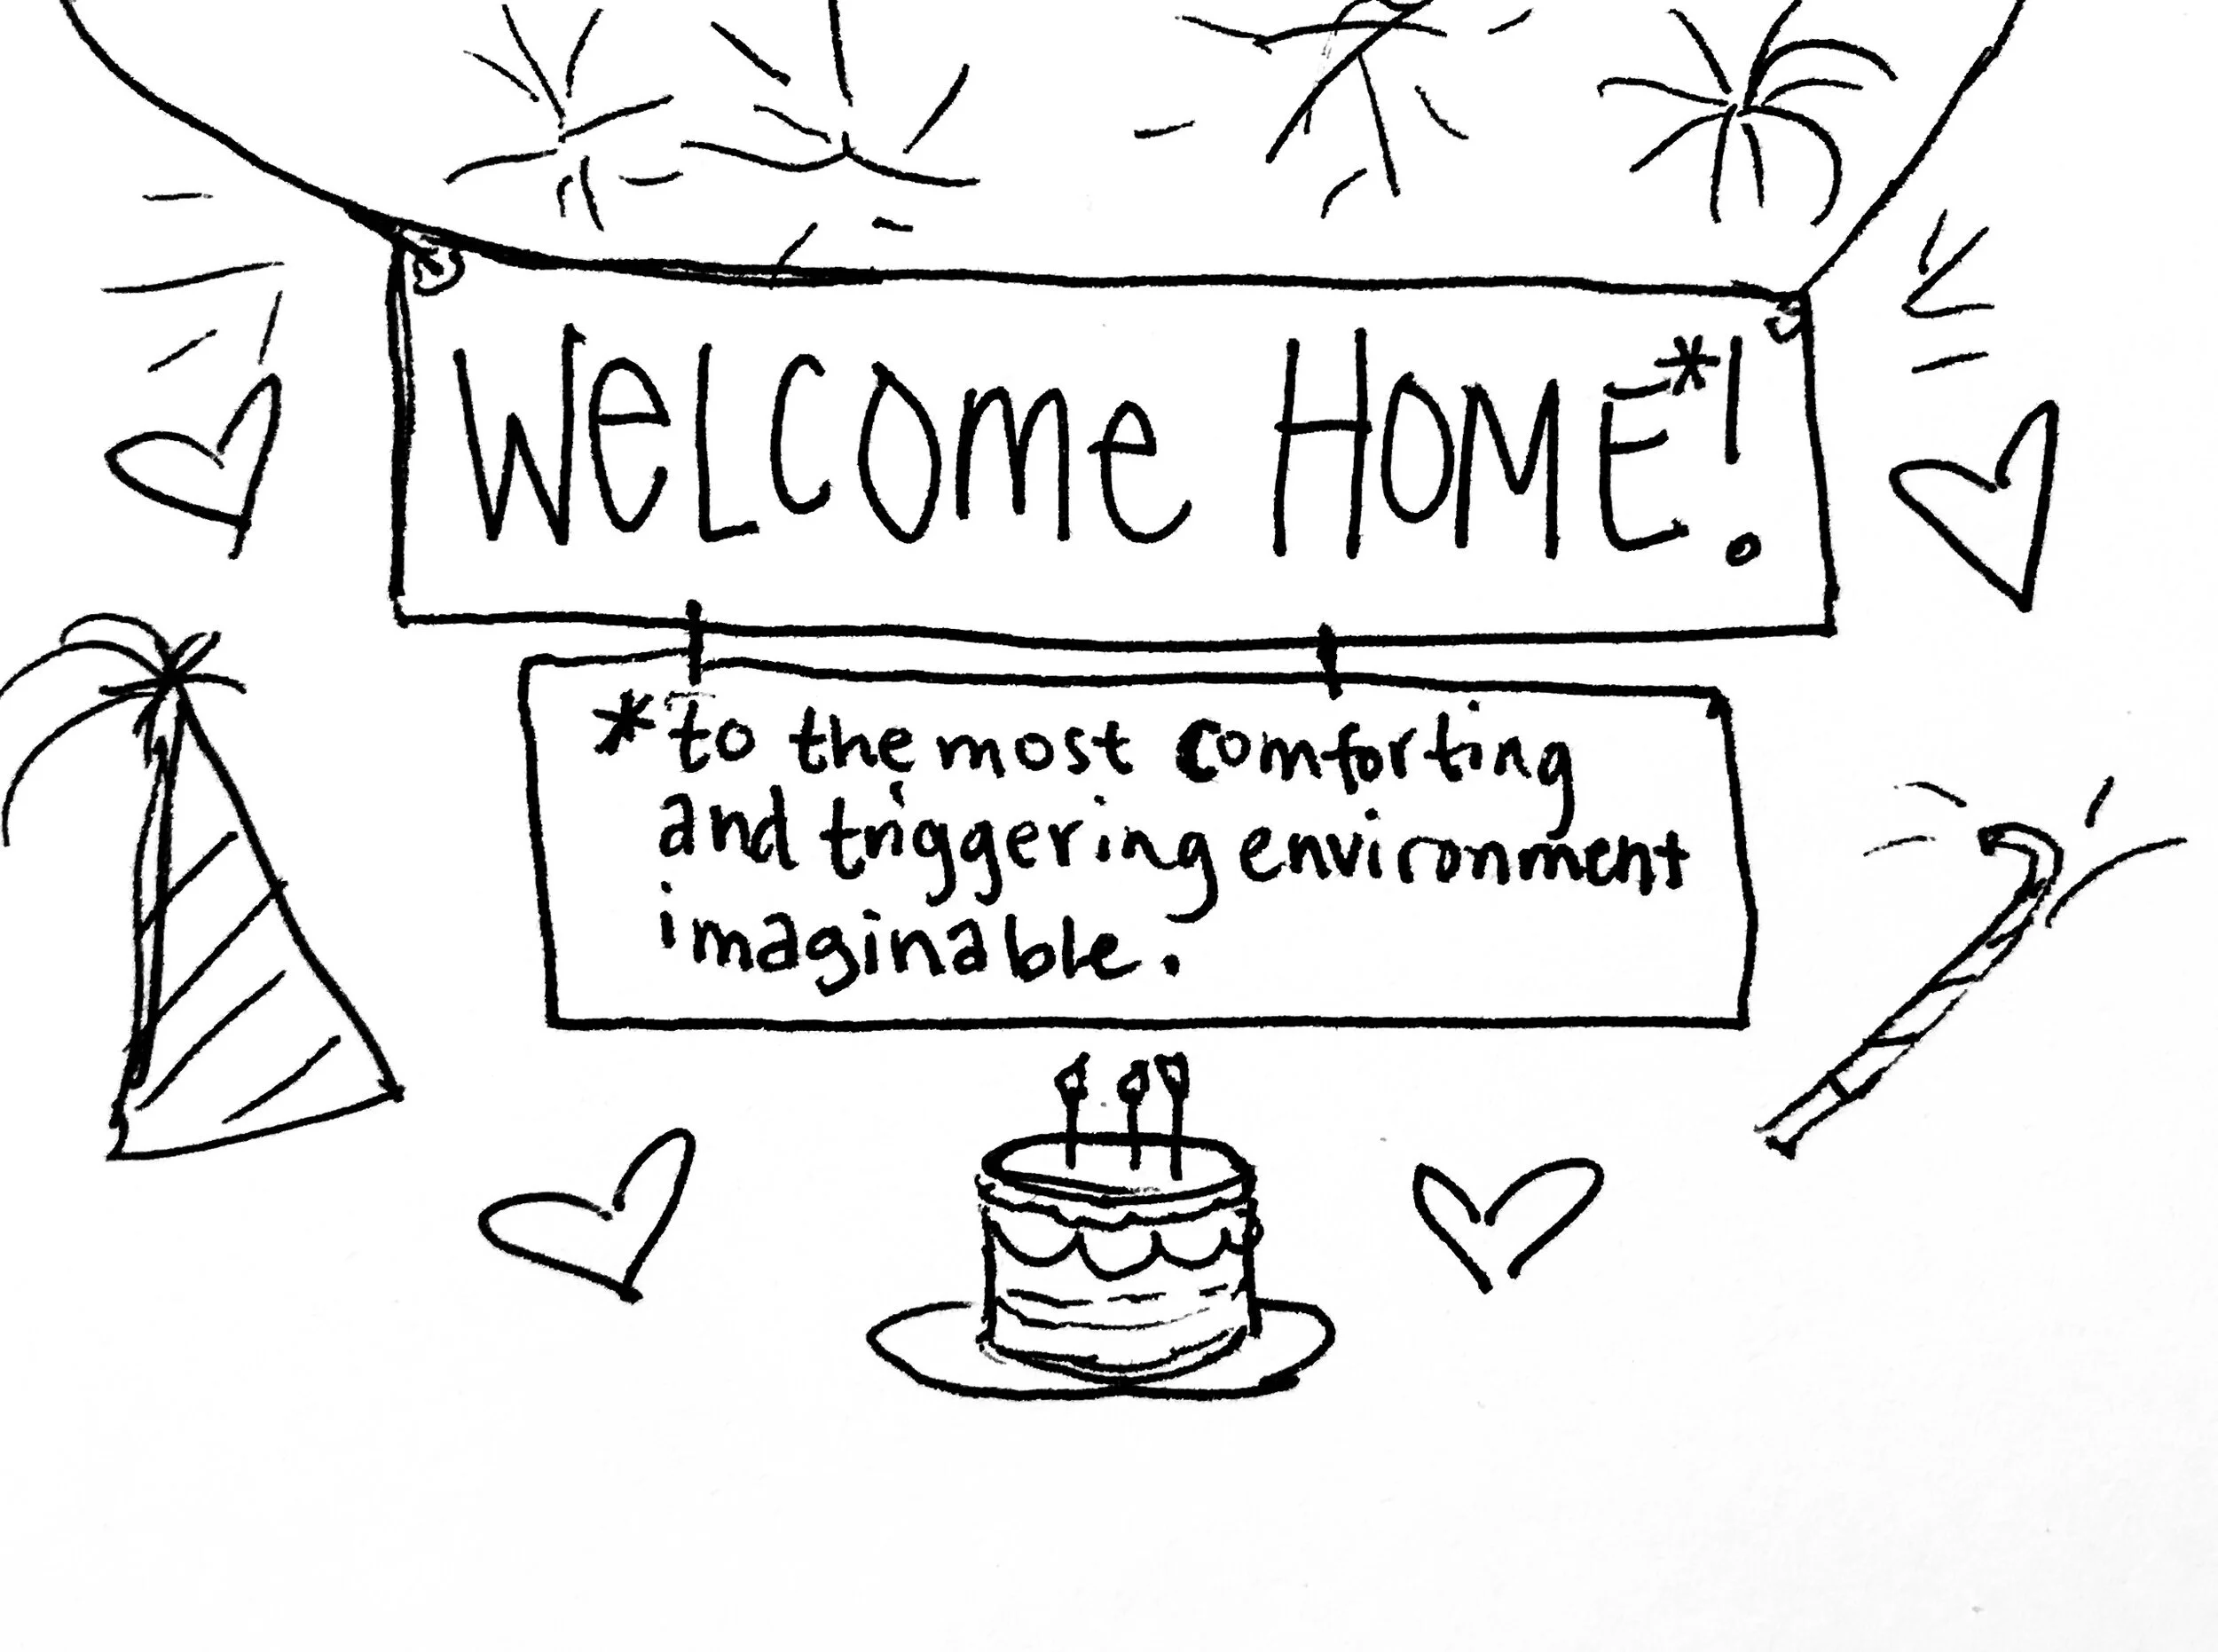 WeLCOMe HOME*!
*to the most comforting
and triggering environment
imaginable.